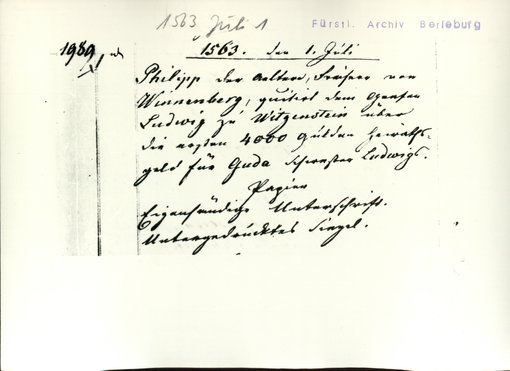 1563 Juli 1
Fürstl. Archiv Berleburg
1989
1563. den 1. Juli
Philipp der Aeltere, Freiherr von
Winnenberg, quitirt dem Grafen
Ludwig zu Witgenstein über
die ersten 4000 Gulden Heiraths-
geld für Guda Schwester Ludwigs.
Papier
Eigenhändige Unterschrift.
Untergedrücktes Siegel.